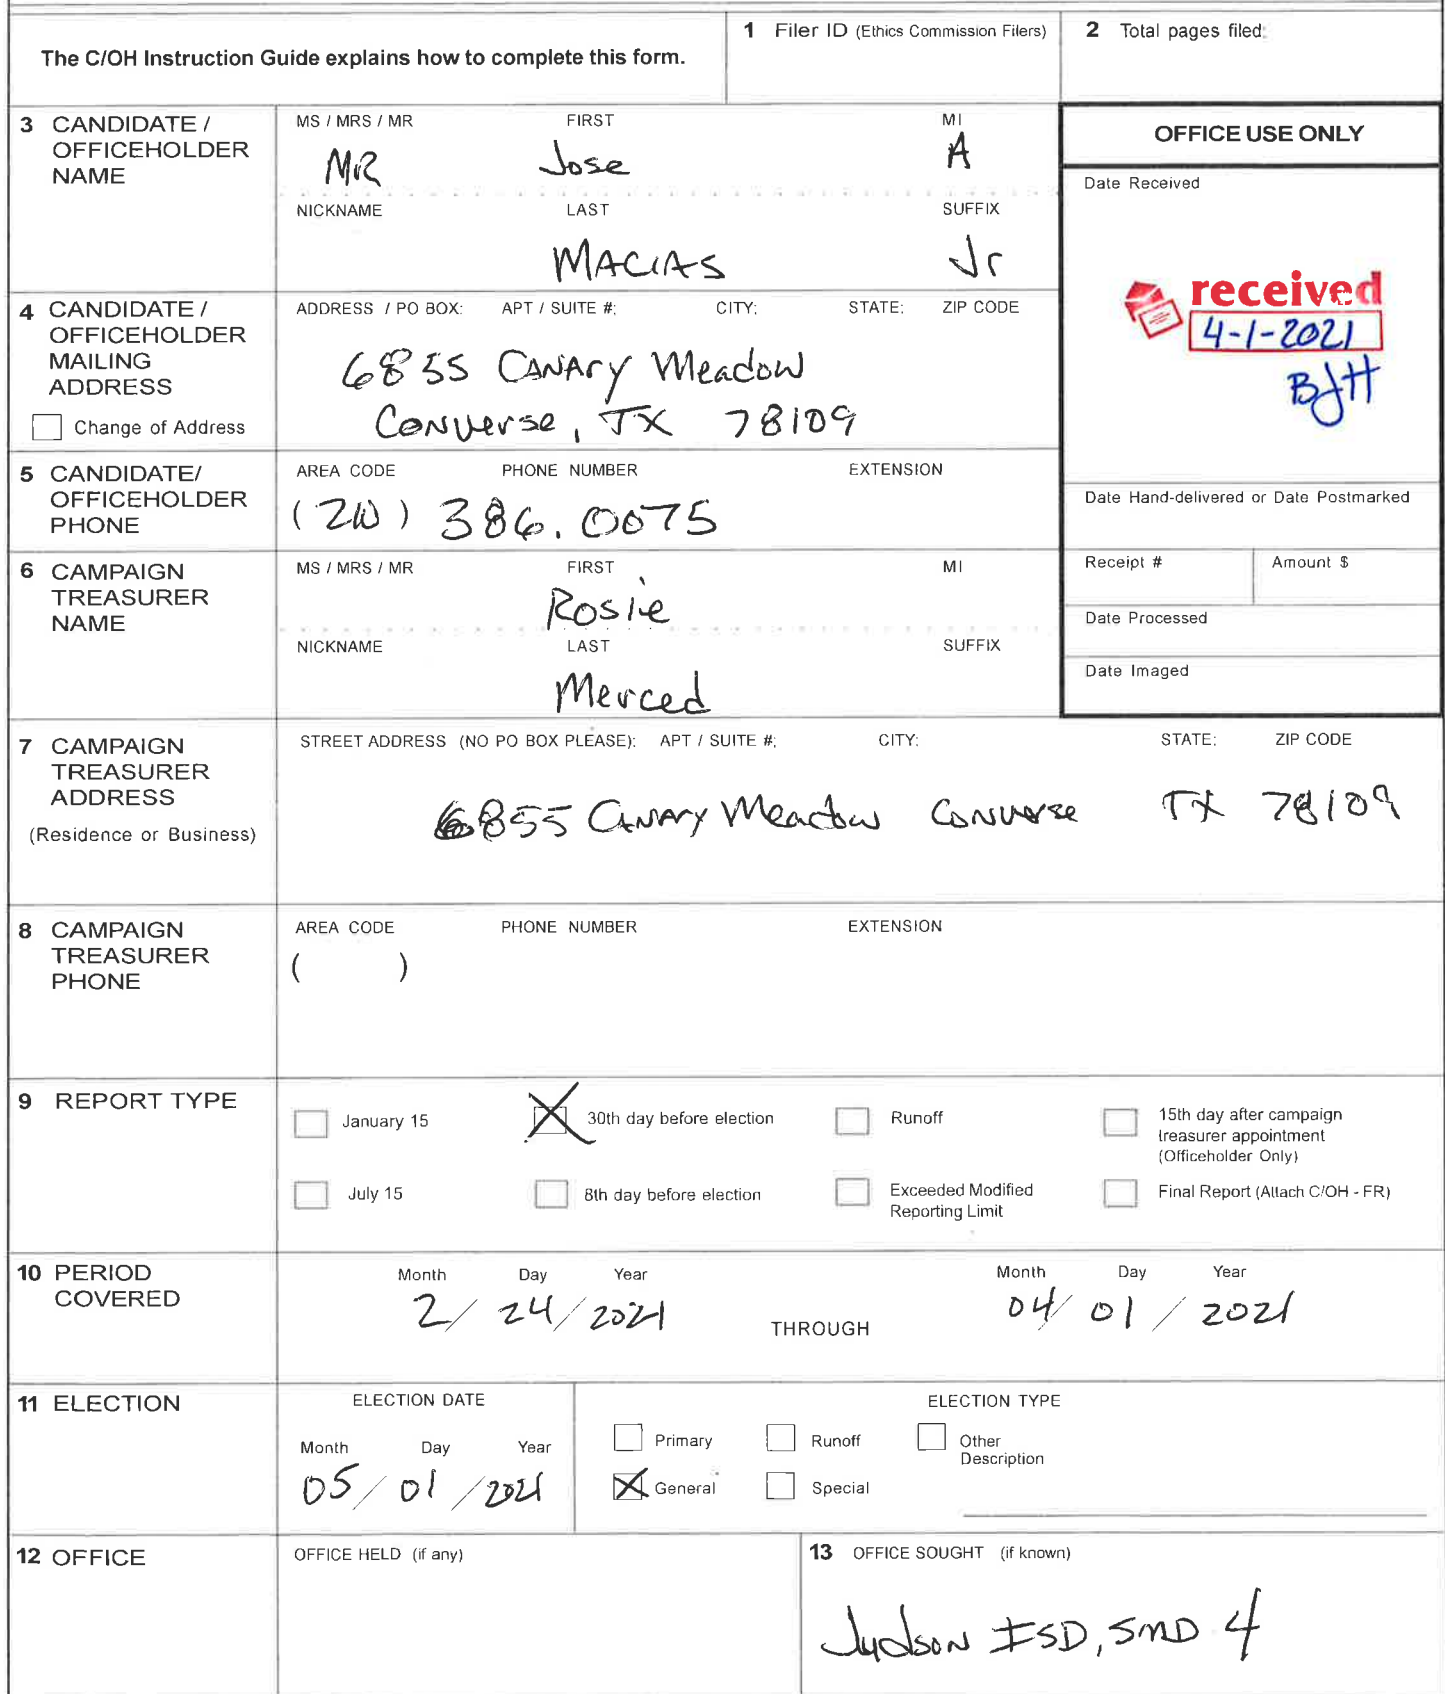 The C/OH Instruction Guide explains how to complete this form.
1 Filer ID (Ethics Commission Filers)
2 Total pages filed:
3 CANDIDATE / OFFICEHOLDER NAME
MS / MRS / MR FIRST MI
MR Jose A
NICKNAME LAST SUFFIX
MACIAS Jr
OFFICE USE ONLY
Date Received
received
4-1-2021
BJH
4 CANDIDATE / OFFICEHOLDER MAILING ADDRESS
Change of Address
ADDRESS / PO BOX: APT / SUITE #: CITY: STATE: ZIP CODE
6855 CANARY Meadow
Converse, TX 78109
5 CANDIDATE/ OFFICEHOLDER PHONE
AREA CODE PHONE NUMBER EXTENSION
(210) 386.0075
Date Hand-delivered or Date Postmarked
Receipt # Amount $
Date Processed
Date Imaged
6 CAMPAIGN TREASURER NAME
MS / MRS / MR FIRST MI
Rosie
NICKNAME LAST SUFFIX
Merced
7 CAMPAIGN TREASURER ADDRESS
(Residence or Business)
STREET ADDRESS (NO PO BOX PLEASE): APT / SUITE #: CITY: STATE: ZIP CODE
6855 CANARY Meadow Converse TX 78109
8 CAMPAIGN TREASURER PHONE
AREA CODE PHONE NUMBER EXTENSION
( )
9 REPORT TYPE
January 15 30th day before election Runoff 15th day after campaign treasurer appointment (Officeholder Only)
July 15 8th day before election Exceeded Modified Reporting Limit Final Report (Attach C/OH - FR)
10 PERIOD COVERED
Month Day Year Month Day Year
2/ 24/ 2021 THROUGH 04/ 01 / 2021
11 ELECTION
ELECTION DATE
Month Day Year
05/ 01 /2021
ELECTION TYPE
Primary Runoff Other Description
General Special
12 OFFICE
OFFICE HELD (if any)
13 OFFICE SOUGHT (if known)
Judson ISD, SMD 4